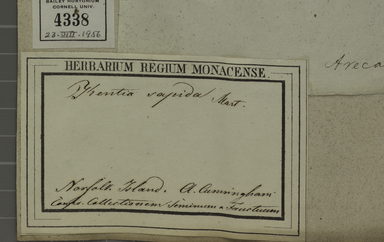 BAILEY HORTORIUM
CORNELL UNIV.
4338
23-VIII-1956
HERBARIUM REGIUM MONACENSE.
Kentia sapida Mart.
Areca
Norfolk Island. A. Cunningham
Confr. Collectionem Seminum & Fructuum